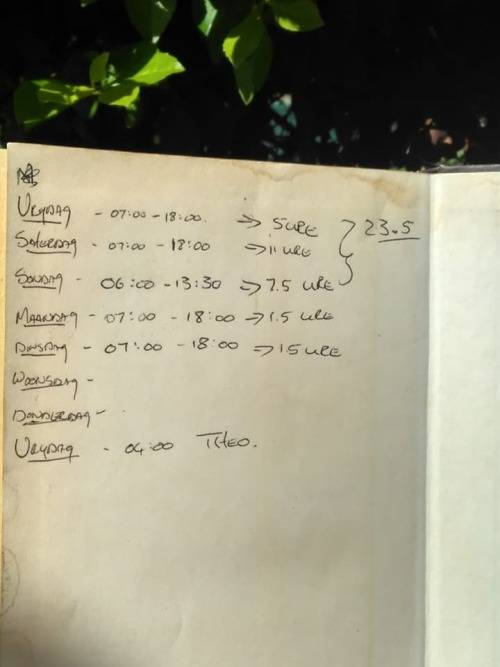 VRYDAG - 07:00 - 18:00. → 5 URE
SATERDAG - 07:00 - 18:00 → 11 URE } 23.5
SONDAG - 06:00 - 13:30 → 7.5 URE
MAANDAG - 07:00 - 18:00 → 1.5 URE
DINSDAG - 07:00 - 18:00 → 1.5 URE
WOONSDAG -
DONDERDAG -
VRYDAG - 04:00 THEO.